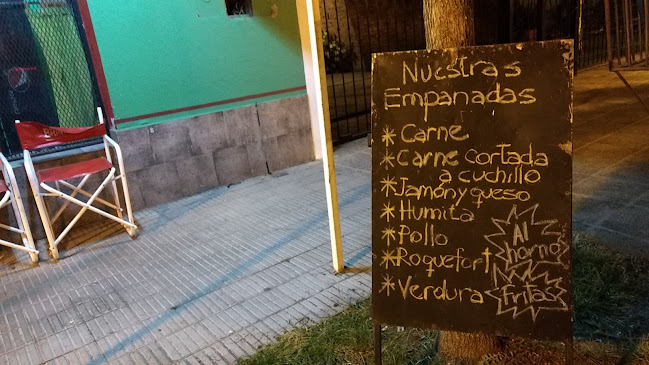 Nuestras
Empanadas
* Carne
* Carne cortada
a cuchillo
* Jamón y queso
* Humita
* Pollo
* Roquefort
* Verdura
Al
horno
fritas